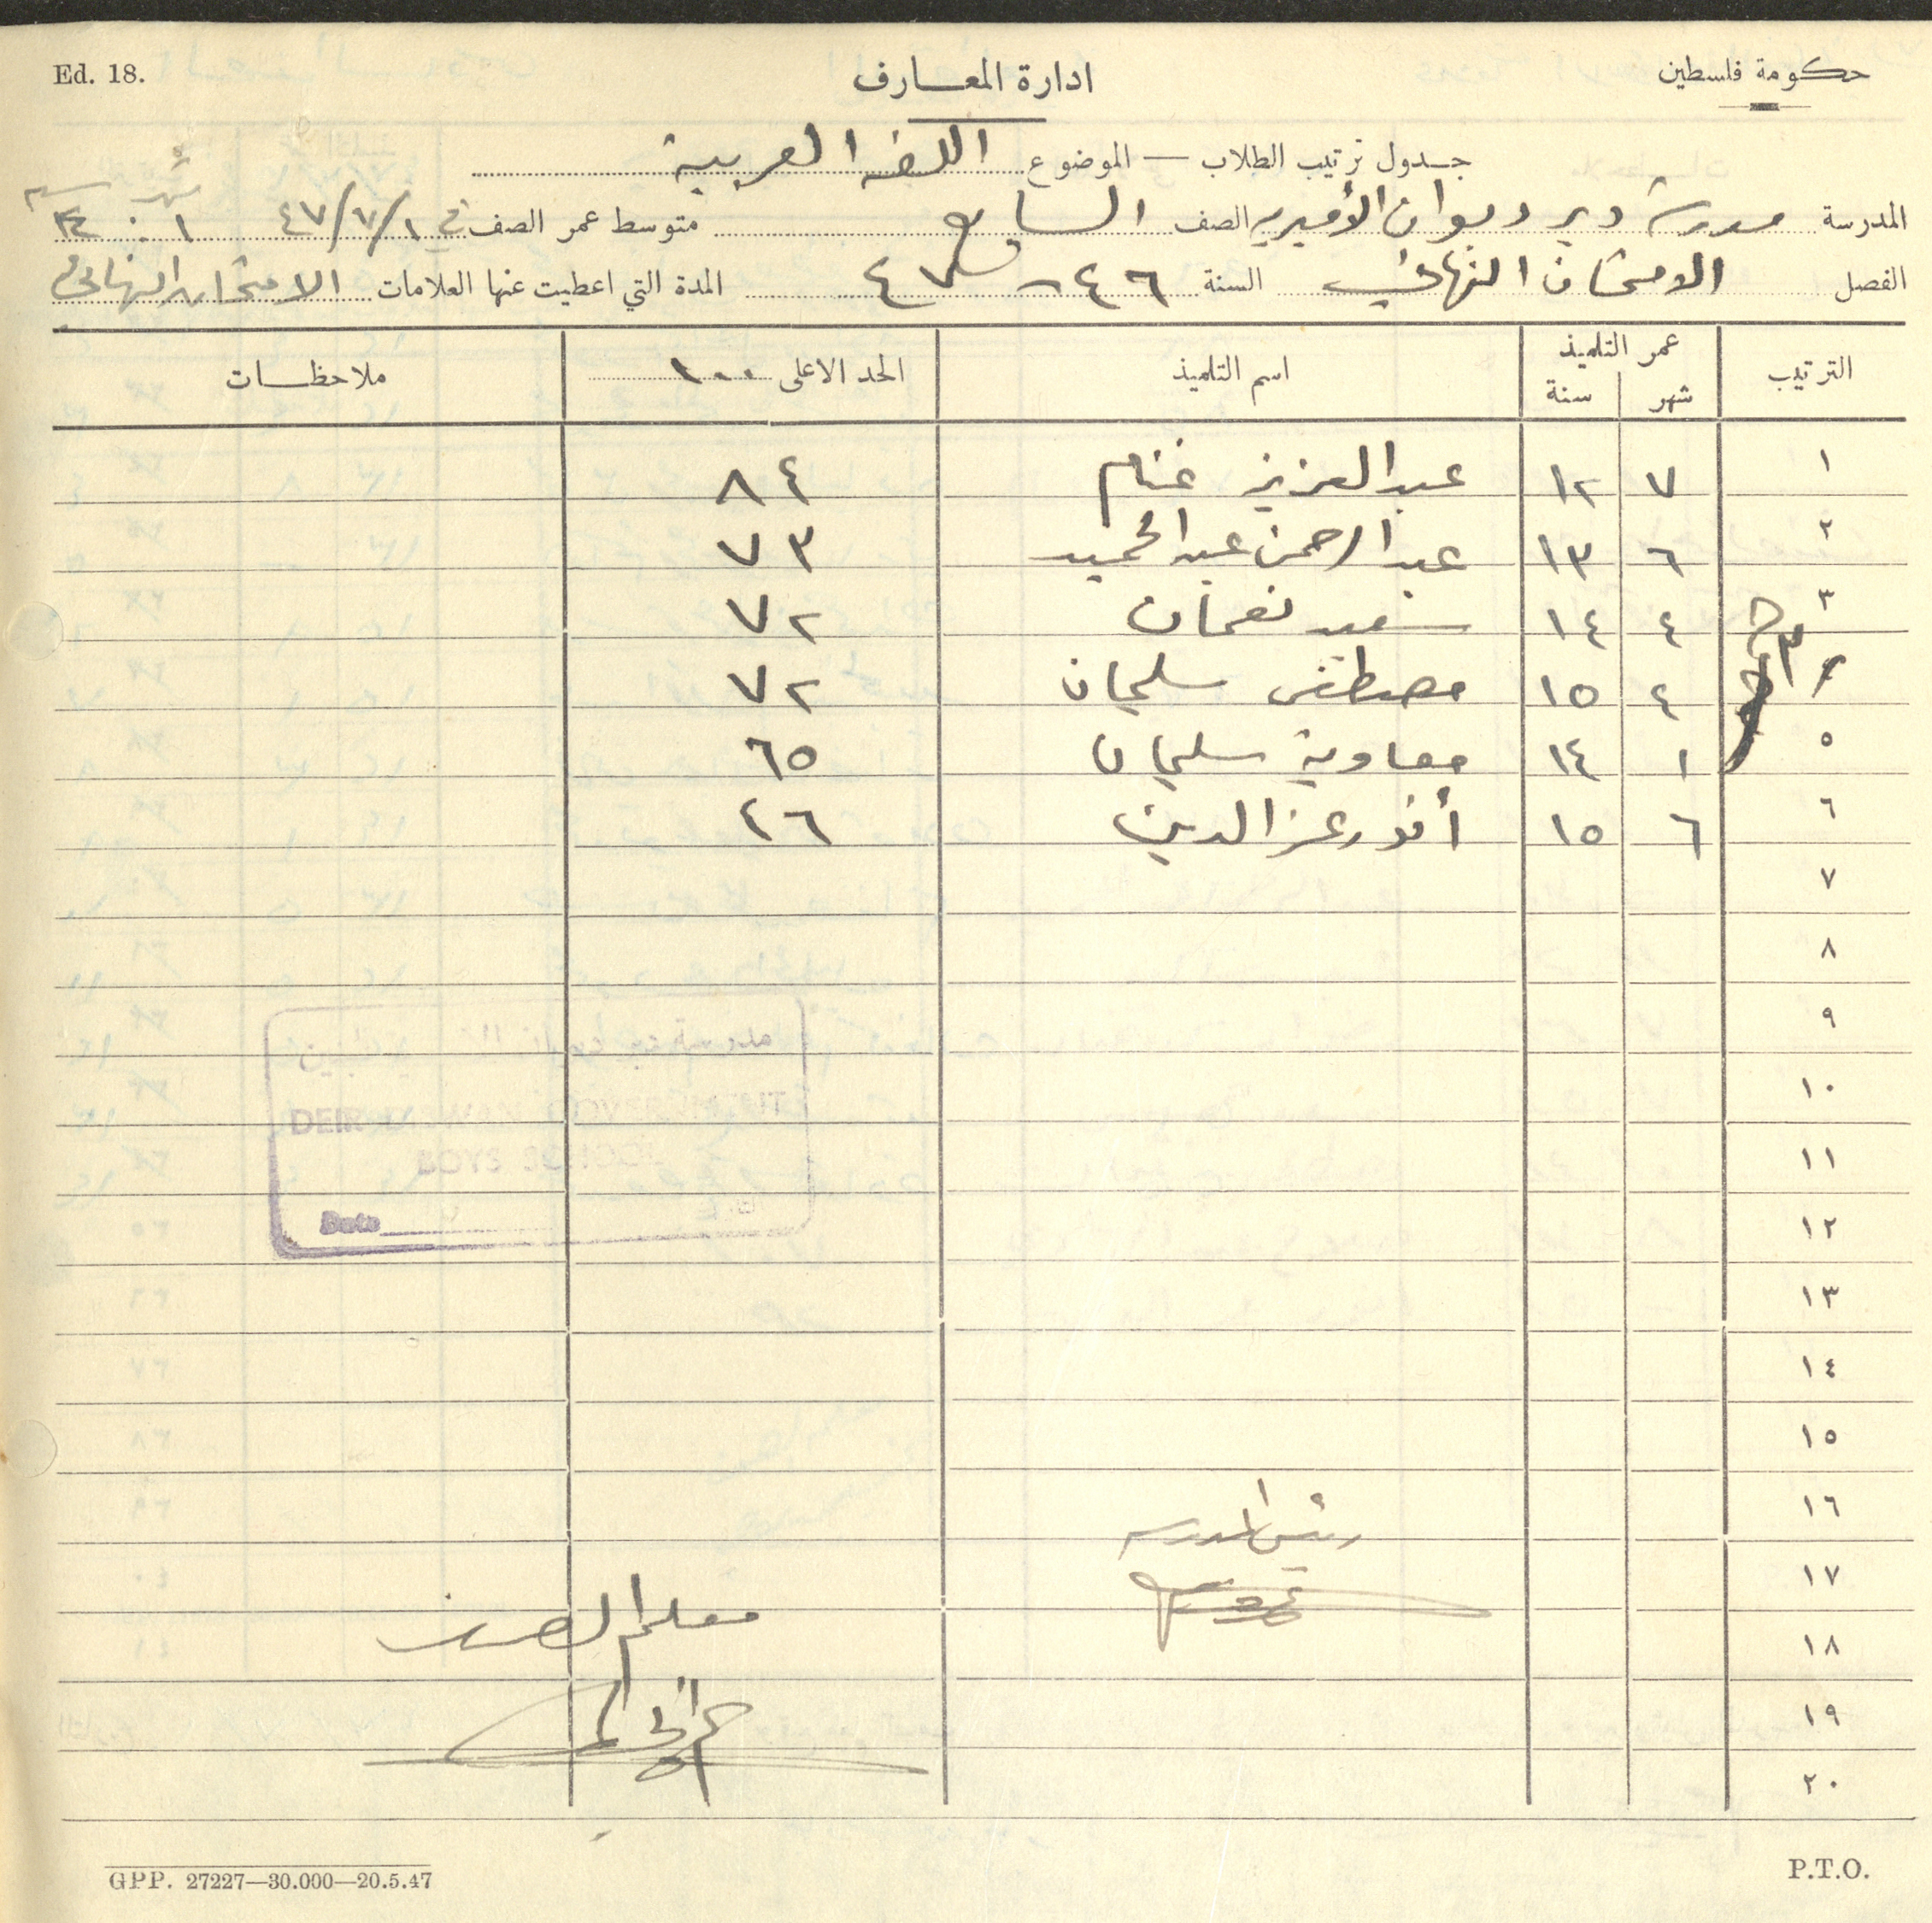 Ed. 18.
ادارة المعارف
حكومة فلسطين
جدول ترتيب الطلاب — الموضوع اللغه العربية
المدرسة مدرسة دير ديوان الأميرية الصف السابع متوسط عمر الصف في ١/٧/٤٧ شهر ١ : سنه ١٤
الفصل الامتحان النهائي السنة ٤٦ - ٤٧ المدة التي اعطيت عنها العلامات الامتحان النهائي
الترتيب عمر التلميذ اسم التلميذ الحد الاعلى ١٠٠ ملاحظات
شهر سنة
١ ٧ ١٢ عبد العزيز غنام ٨٤
٢ ٦ ١٣ عبد الرحمن عبد الحميد ٧٣
٣ ٤ ١٤ سعيد نعمان ٧٢
٣ ٤ ١٥ مصطفى سليمان ٧٢
٥ ١ ١٤ معاوية سليمان ٦٥
٦ ٦ ١٥ أنور عز الدين ٤٦
٧
٨
٩
١٠
DEIR DIWAN GOVERNMENT
BOYS SCHOOL
١١
Date
١٢
١٣
١٤
١٥
١٦
رئيس المدرسه
١٧
معلم الصف
١٨
١٩
٢٠
GPP. 27227—30.000—20.5.47
P.T.O.